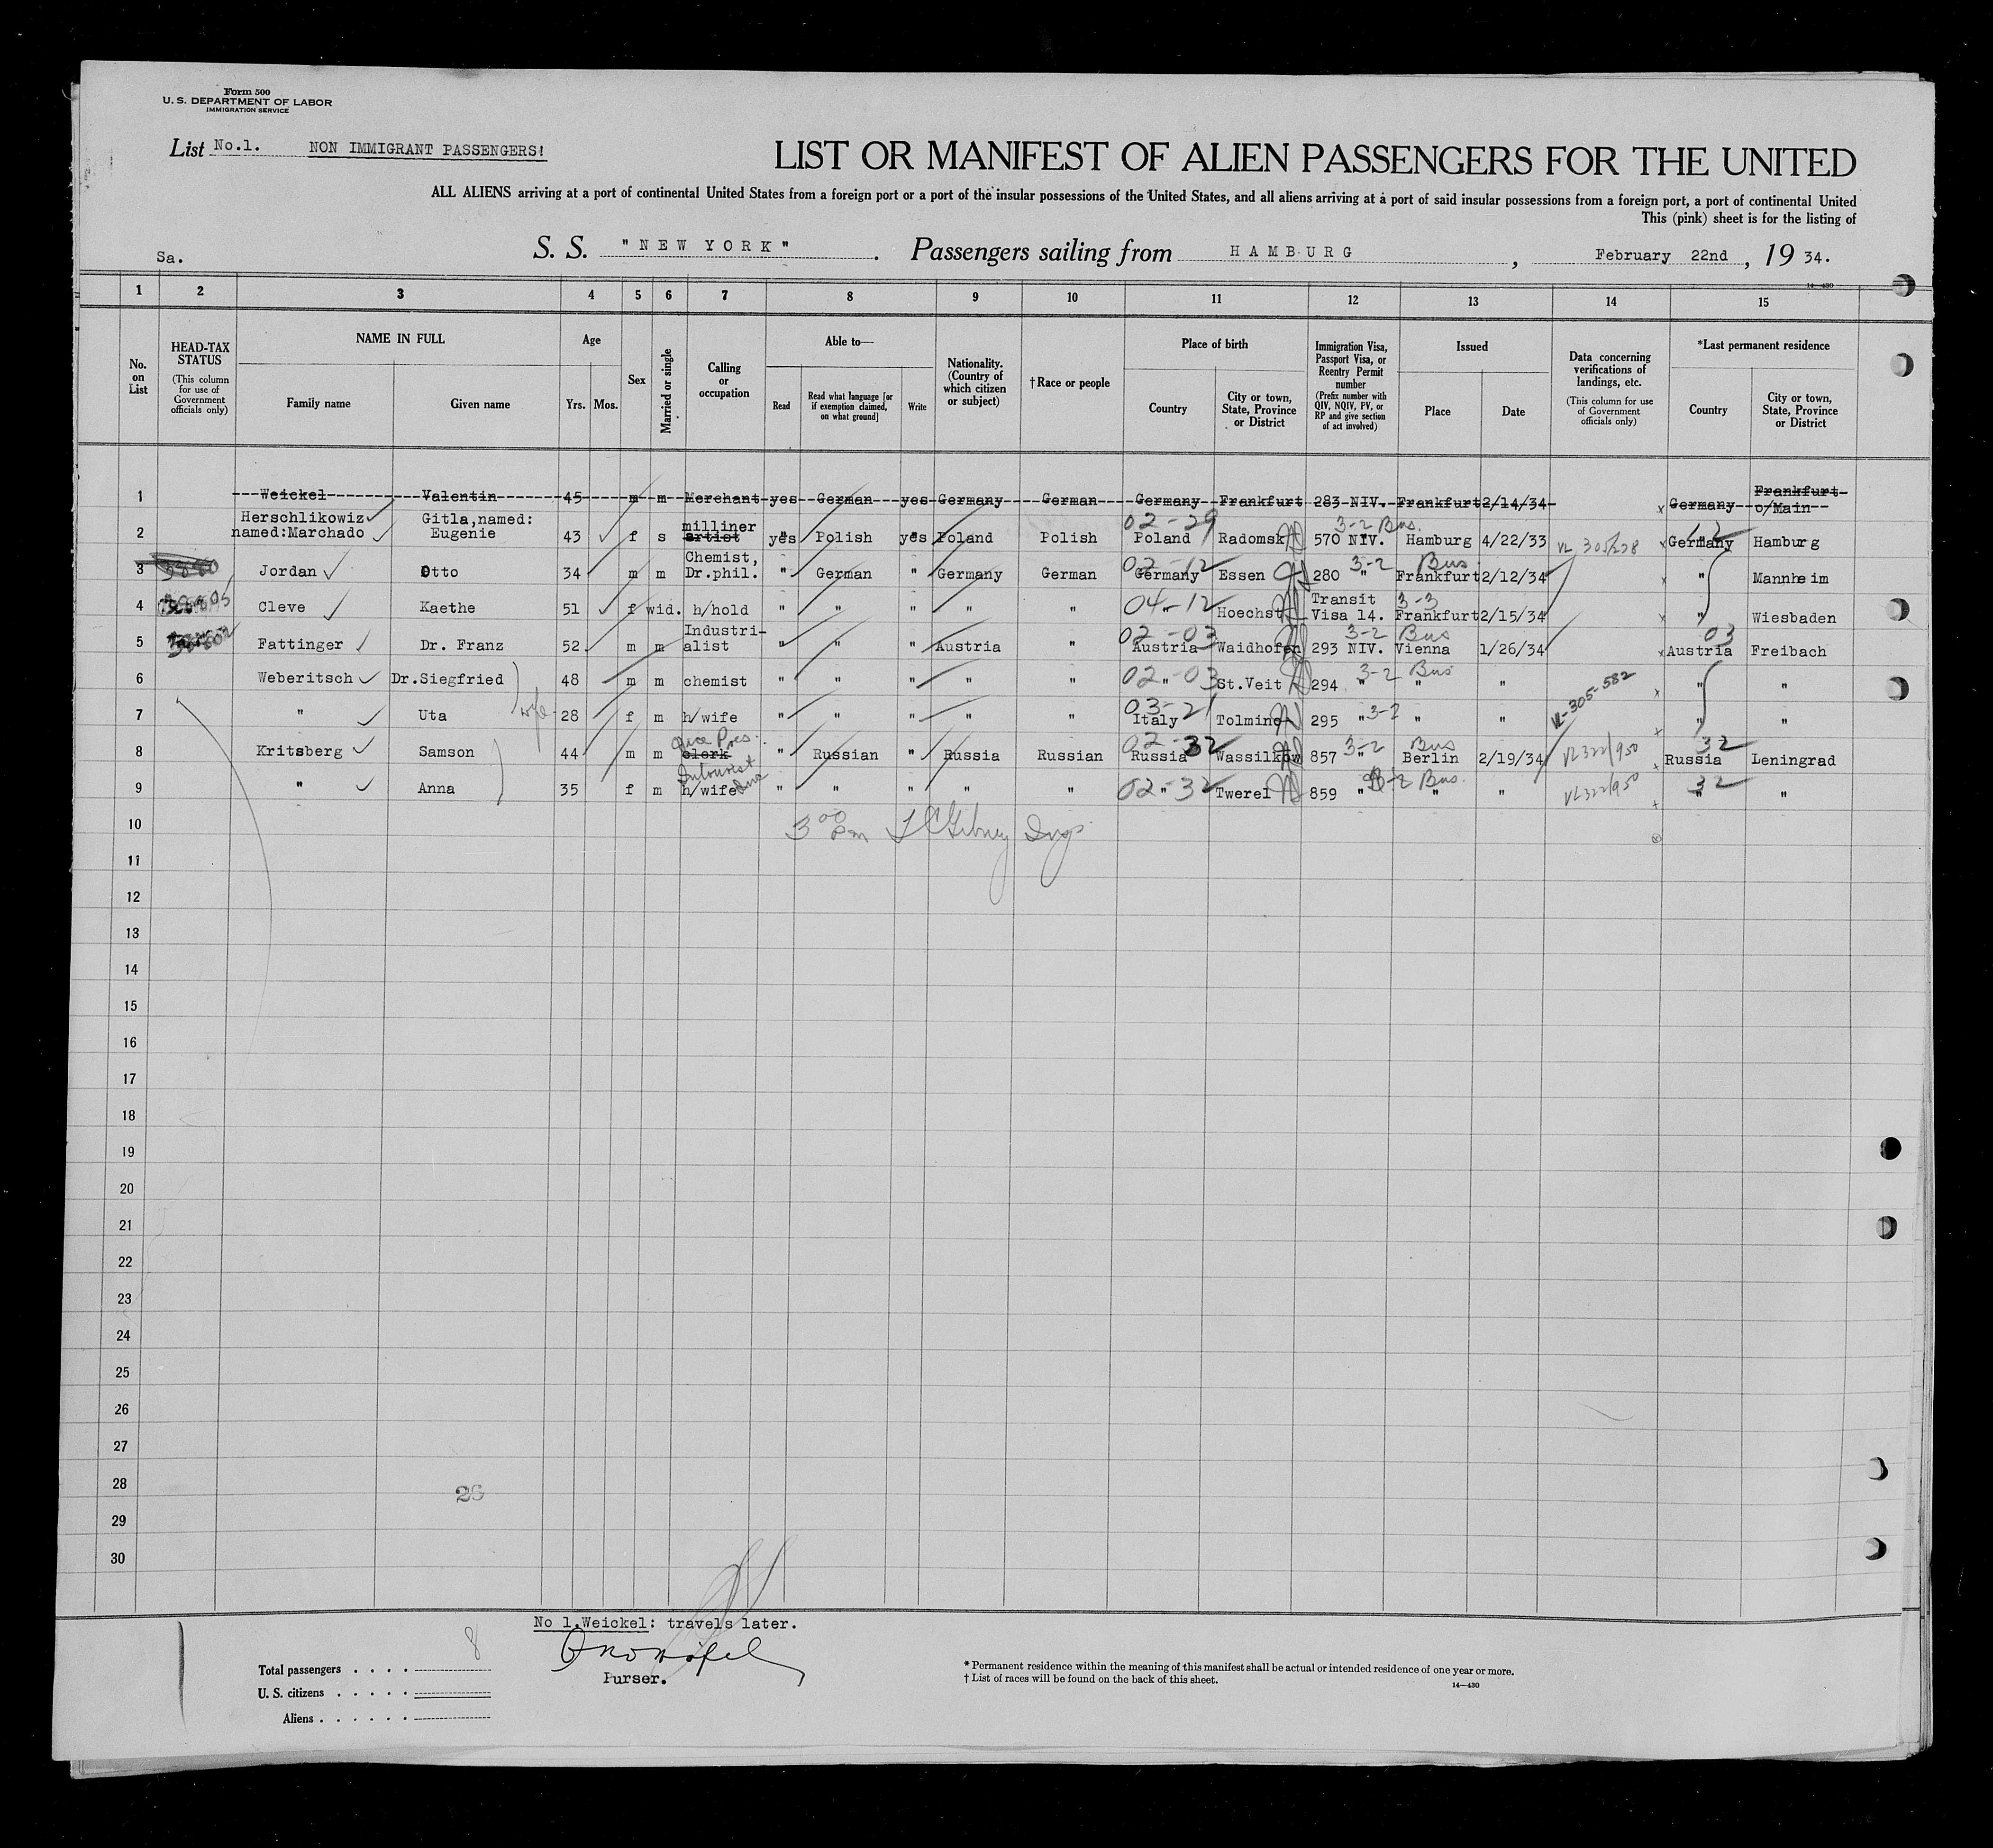 Form 500
U. S. DEPARTMENT OF LABOR
IMMIGRATION SERVICE
List No.1. NON IMMIGRANT PASSENGERS!
LIST OR MANIFEST OF ALIEN PASSENGERS FOR THE UNITED
ALL ALIENS arriving at a port of continental United States from a foreign port or a port of the insular possessions of the United States, and all aliens arriving at a port of said insular possessions from a foreign port, a port of continental United
This (pink) sheet is for the listing of
Sa. S. S. "NEW YORK". Passengers sailing from HAMBURG, February 22nd, 1934.
14—430
1 2 3 4 5 6 7 8 9 10 11 12 13 14 15
No. on List
HEAD-TAX STATUS (This column for use of Government officials only)
NAME IN FULL Family name Given name
Age Yrs. Mos.
Sex
Married or single
Calling or occupation
Able to— Read Read what language [or if exemption claimed, on what ground] Write
Nationality. (Country of which citizen or subject)
†Race or people
Place of birth Country City or town, State, Province or District
Immigration Visa, Passport Visa, or Reentry Permit number (Prefix number with QIV, NQIV, PV, or RP and give section of act involved)
Issued Place Date
Data concerning verifications of landings, etc. (This column for use of Government officials only)
*Last permanent residence Country City or town, State, Province or District
1 Weickel Valentin 45 m m Merchant yes German yes Germany German Germany Frankfurt 283 NIV. Frankfurt 2/14/34 x Germany Frankfurt c/Main
2 Herschlikowiz named:Marchado Gitla,named: Eugenie 43 f s milliner artist yes Polish yes Poland Polish 02-29 Poland Radomsk 570 NIV. 3-2 Bus. Hamburg 4/22/33 VL 305/228 x Germany 12 Hamburg
3 Jordan Otto 34 m m Chemist, Dr.phil. " German " Germany German 02-12 Germany Essen 280 " 3-2 Bus Frankfurt 2/12/34 x " Mannheim
4 Cleve Kaethe 51 f wid. h/hold " " " " " 04-12 Hoechst Transit Visa 14. 3-3 Frankfurt 2/15/34 x " Wiesbaden
5 Fattinger Dr. Franz 52 m m Industri-alist " " " Austria " 02-03 Austria Waidhofen 293 NIV. 3-2 Bus Vienna 1/26/34 x 03 Austria Freibach
6 Weberitsch Dr.Siegfried 48 m m chemist " " " " " 02-03 " St.Veit 294 " 3-2 Bus " " x " "
7 " Uta wife 28 f m h/wife " " " " " 03-21 Italy Tolmino 295 " 3-2 " " VL-305-582 x " "
8 Kritsberg Samson 44 m m Vice Pres. clerk Intourist Inc " Russian " Russia Russian 02-32 Russia Wassilkow 857 " 3-2 Bus Berlin 2/19/34 VL322/950 x 32 Russia Leningrad
9 " Anna 35 f m h/wife " " " " " 02-32 " Twerel 859 " 3-2 Bus. " " VL322/950 x 32 " "
10 3 00 Pm Insp.
11
12
13
14
15
16
17
18
19
20
21
22
23
24
25
26
27
28
26
29
30
No 1,Weickel: travels later.
Purser.
Total passengers . . . . 8
U. S. citizens . . . . .
Aliens . . . . . .
* Permanent residence within the meaning of this manifest shall be actual or intended residence of one year or more.
† List of races will be found on the back of this sheet.
14—430